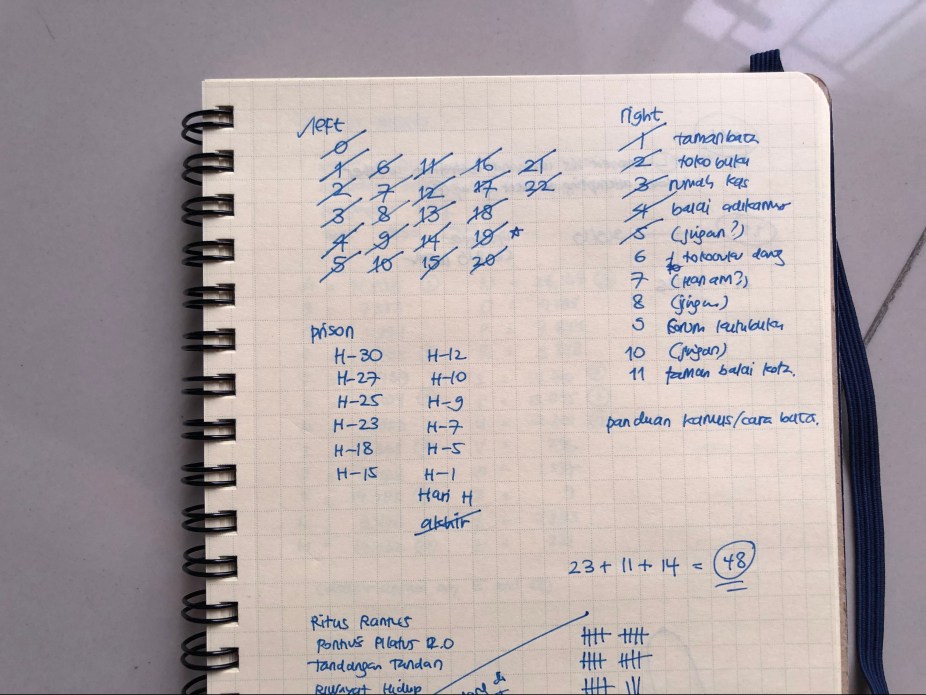 left
0
1 6 11 16 21
2 7 12 17 22
3 8 13 18
4 9 14 19 *
5 10 15 20
prison
H-30 H-12
H-27 H-10
H-25 H-9
H-23 H-7
H-18 H-5
H-15 H-1
Hari H
akhir
right
1 taman bata
2 toko buku
3 rumah kas
4 balai
5 (jingan?)
6
7
8 (jingan)
9 forum kutubuku
10 (jingan)
11 taman balai kota.
panduan kamus/cara bata.
23 + 11 + 14 = 48
Ritus
Pontius Pilatus 12.0
tandangan tandan
Riwayat Hidup